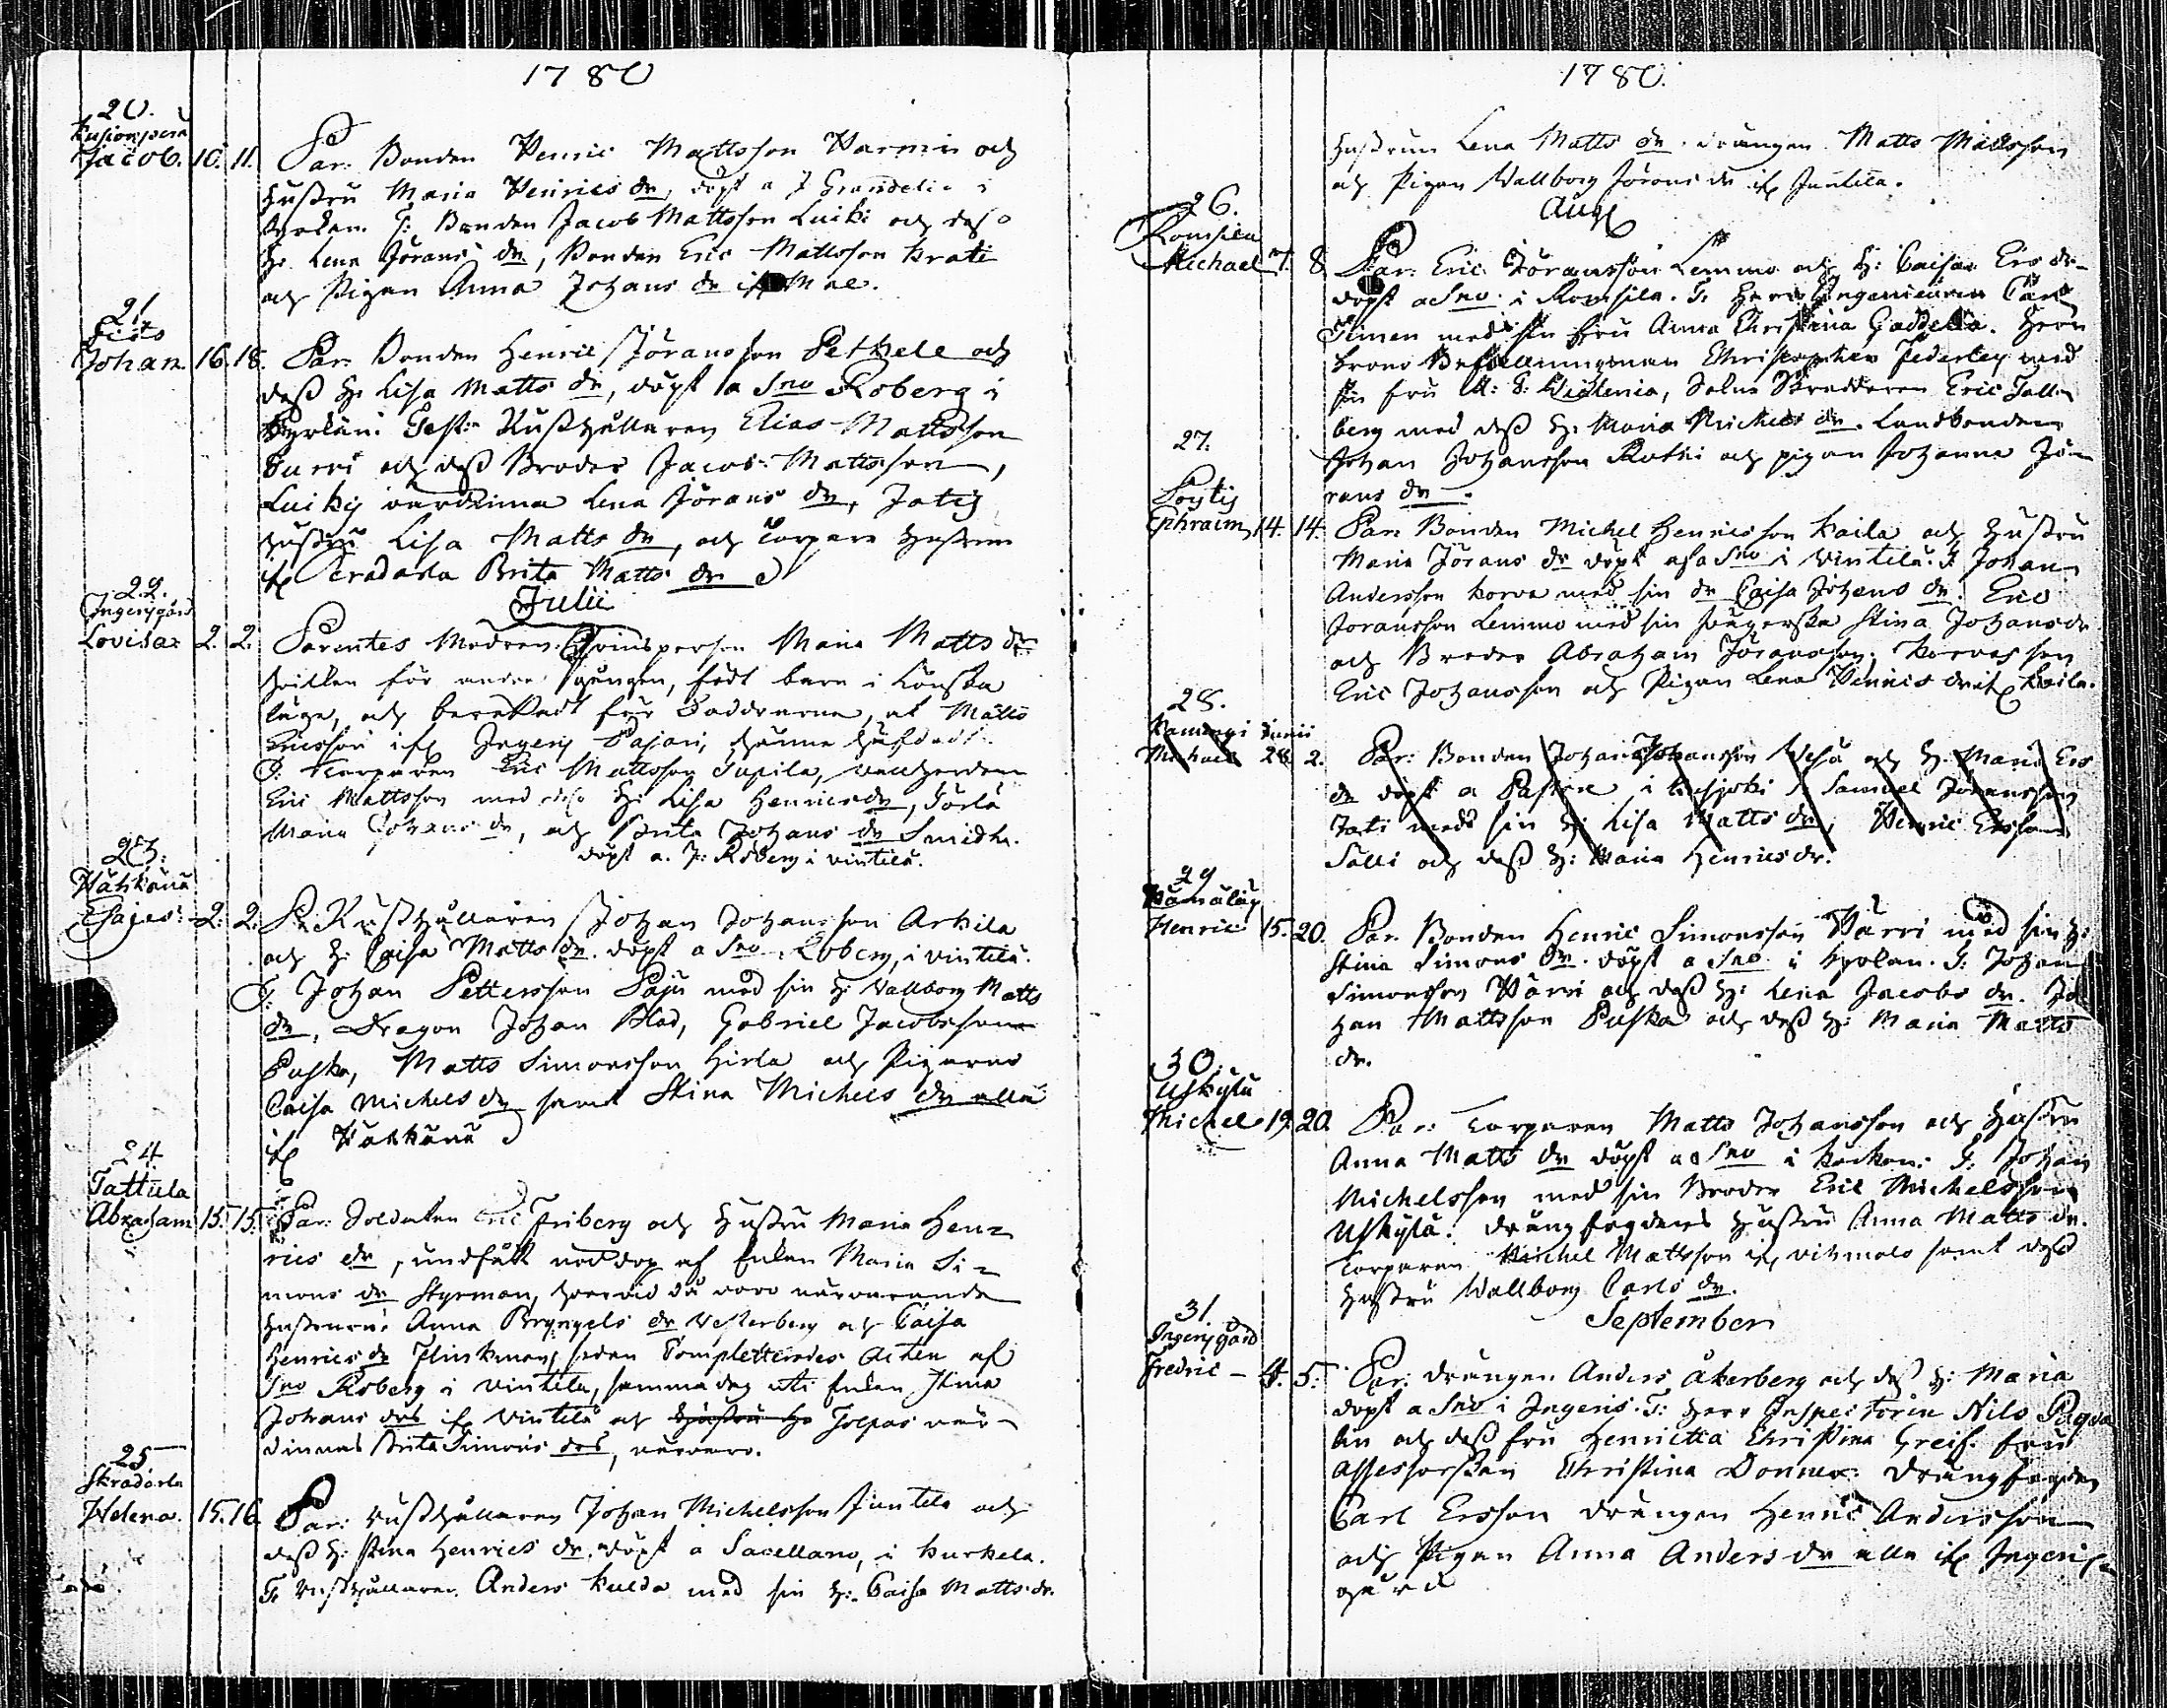 1780
20.
Jacob. 10. 11. Par: Bonden Henric Mattsson Harmi och
hustru Maria Henrics dr, döpt a J Grandelin i
Kyrkan. T: Bonden Jacob Mattsson Luiki och dess
h: Lena Jörans dr, Bonden Eric Mattsson Krati
och Pigan Anna Johans dr if
21.
Johan. 16. 18. Par: Bonden Henric Jöransson Pethele och
dess h: Lisa Matts dr, döpt a Sno Roberg i
Kyrkan. Test: Rusthållaren Elias Mattsson
och dess Broder Jacob Mattsson,
Luikis värdinna Lena Jörans dr, Jatis
hustru Lisa Matts dr, och Torpare hustrun
if Cradarla Brita Matts dr
Julii
22.
Ingerisgård
Lovisa 2. 2. Parentes Modren Qvinsperson Maria Matts dr
hvilken för andra gången, födt barn i Lönska
läge, och berättadt för Faddrarna, at Matts
Ericsson if Ingeris Pajari, henne häfdadt.
T: Torparen Eric Mattsson Supila,
Eric Mattsson med dess h: Lisa Henricsdr,
Maria Johans dr, och Brita Johans dr Smidh.
döpt a. J: Roberg i Vintilä.
23.
Esajas 2. 2. P: Rusthållaren Johan Johansson Arkila
och h: Caisa Matts dr. döpt a Sno Roberg, i Vintilä.
T: Johan Pettersson Paju med sin h: Wallborg Matts
dr, Dragon Johan Blad, Gabriel Jacobsson
Puska, Matts Simonsson Hirla och Pigorna
Caisa Michels dr samt Stina Michels dr alla
if
24.
Tattula
Abraham 15. 15. Par: Soldaten Eric Friberg och hustru Maria Hen-
rics dr, undfått nöddop af Enkan Maria Si-
mons dr Styrman, hvarvid då voro närvarande
hustrurna Anna Bryngels dr Westerberg och Caisa
Henrics dr Flinkman, sedan Completterades Acten af
Sno Roberg i Vintila, samma dag uti Enkan Stina
Johans drs if Vintilä och hustru h: Tolpas vär-
dinnas Brita Simons drs, närvaro.
25
Skradarla
Helena. 15. 16. Par: Rusthållaren Johan Michelsson Juntila och
dess h: Stina Henrics dr. döpt a Sacellano, i Kurkela.
T: Rusthållaren Anders Kulda med sin h: Caisa Matts dr.
1780.
hustrun Lena Matts dr. drängen Matts Mattsson
och Pigan Wallborg Jörans dr if Juntila.
Aug
26.
Romsila
Michael 7. 8. Par: Eric Jöransson Lemmo och h: Caisa Ers dr
döpt a Sno i Romsila. T: Herr Ingenieuren Carl
Timen med sin fru Anna Christina Gaddelia. Herr
Krono Befallningsman Christopher Federley med
sin fru Widenia, Sokne Skräddaren Eric Tall-
berg med dess h: Maria Michels dr. Landbonden
Johan Johansson Rothi och pigan Johanna Jö-
rans dr.
27.
Pöytis
Ephraim 14. 14. Par: Bonden Michel Henricsson Kaila och hustru
Maria Jörans dr döpt af a Sno i Vintilä. T: Johan
Andersson Korva med sin dr Caisa Johans dr. Eric
Jöransson Lemmo med sin svägerska Stina Johans dr
och Broder Abraham Jöransson, Korvas son
Eric Johansson och Pigan Lena Henrics dr if Kaila.
28.
Junii
Michael 28. 2. Par: Bonden Johan Johansson Uscha och h: Maria Ers
dr döpt a Pastore i T: Samuel Jöransson
Jati med sin h: Lisa Matts dr, Henric Ersson
Salli och dess h: Maria Henrics dr.
29
Henric 15. 20. Par. Bonden Henric Simonsson Härri med sin h:
Stina Simons dr. döpt a Sno i Kyrkan. T: Johan
Simonsson Härri och dess h: Lena Jacobs dr. Jo-
han Mattsson Puska och dess h: Maria Matts
dr.
30.
Uskylä
Michel 19. 20. Par: Torparen Matts Johansson och hustru
Anna Matts dr döpt a Sno i Koskon. T: Johan
Michelsson med sin Broder Eric Michelsson
Uskylä. Drängfogdens hustru Anna Matts dr.
Torparen Michel Mattsson if Vihmalo samt dess
hustru Wallborg Carls dr.
September
31.
Ingerisgård
Fredric - 4. 5. Par: drängen Anders Åkerberg och dess h: Maria
döpt a Sno i Ingeris. T: Herr Inspectoren Nils
och dess fru Henrietta Christina Greif. fru
Assessorskan Christina Donner. Drängfogden
Carl Ersson drängen Henric Andersson
och Pigan Anna Anders dr alla if Ingeris-
gård